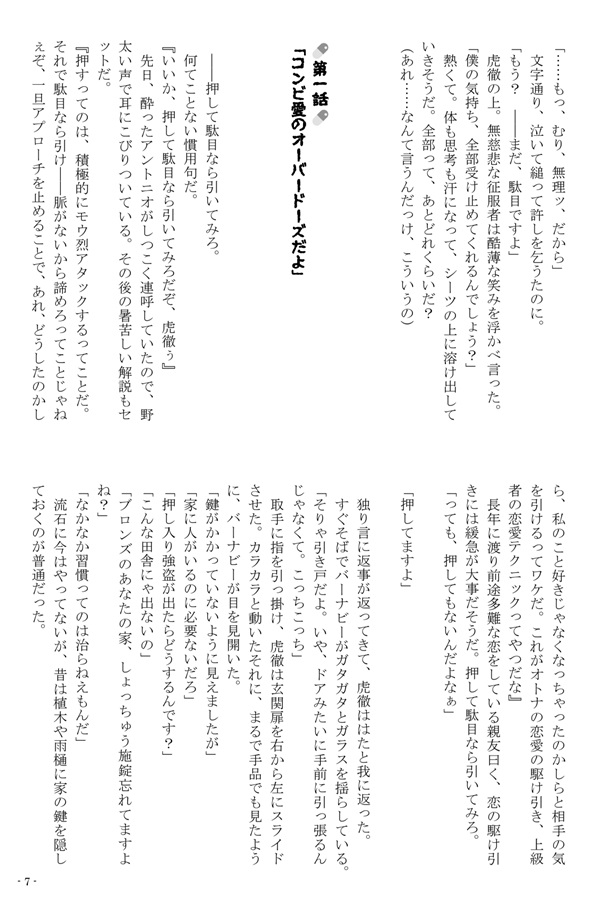 「……もっ、むり、無理ッ、だから」
文字通り、泣いて縋って許しを乞うたのに。
「もう？　――まだ、駄目ですよ」
虎徹の上。無慈悲な征服者は酷薄な笑みを浮かべ言った。
「僕の気持ち、全部受け止めてくれるんでしょう？」
熱くて。体も思考も汗になって、シーツの上に溶け出して
いきそうだ。全部って、あとどれくらいだ？
（あれ……なんて言うんだっけ、こういうの）
第一話
「コンビ愛のオーバードーズだよ」
――押して駄目なら引いてみろ。
何てことない慣用句だ。
『いいか、押して駄目なら引いてみろだぞ、虎徹ぅ』
先日、酔ったアントニオがしつこく連呼していたので、野
太い声で耳にこびりついている。その後の暑苦しい解説もセ
ットだ。
『押すってのは、積極的にモウ烈アタックするってことだ。
それで駄目なら引け――脈がないから諦めろってことじゃね
ぇぞ、一旦アプローチを止めることで、あれ、どうしたのかし
ら、私のこと好きじゃなくなっちゃったのかしらと相手の気
を引けるってワケだ。これがオトナの恋愛の駆け引き、上級
者の恋愛テクニックってやつだな』
長年に渡り前途多難な恋をしている親友曰く、恋の駆け引
きには緩急が大事だそうだ。押して駄目なら引いてみろ。
「っても、押してもないんだよなぁ」
「押してますよ」
独り言に返事が返ってきて、虎徹ははたと我に返った。
すぐそばでバーナビーがガタガタとガラスを揺らしている。
「そりゃ引き戸だよ。いや、ドアみたいに手前に引っ張るん
じゃなくて。こっちこっち」
取手に指を引っ掛け、虎徹は玄関扉を右から左にスライド
させた。カラカラと動いたそれに、まるで手品でも見たよう
に、バーナビーが目を見開いた。
「鍵がかかっていないように見えましたが」
「家に人がいるのに必要ないだろ」
「押し入り強盗が出たらどうするんです？」
「こんな田舎にゃ出ないの」
「ブロンズのあなたの家、しょっちゅう施錠忘れてますよ
ね？」
「なかなか習慣ってのは治らねえもんだ」
流石に今はやってないが、昔は植木や雨樋に家の鍵を隠し
ておくのが普通だった。
- 7 -